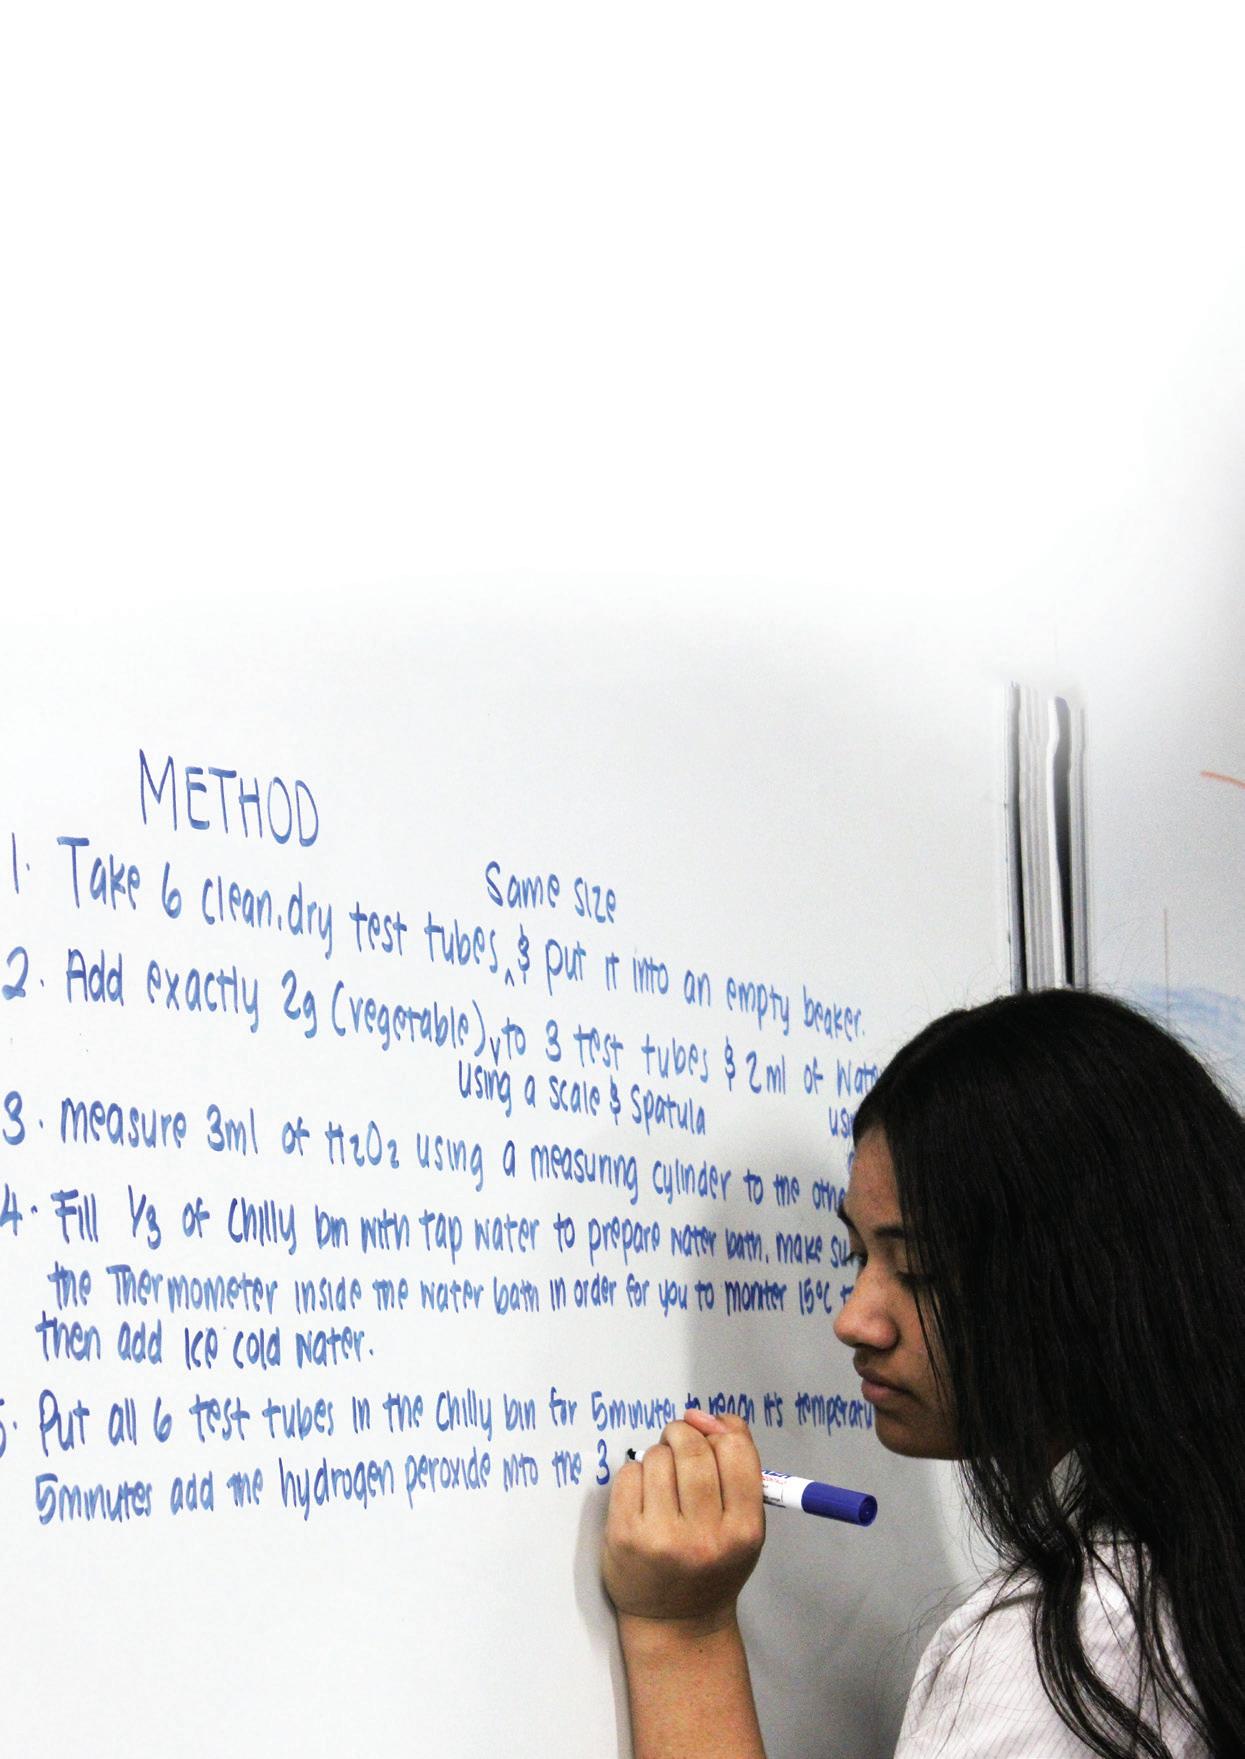 METHOD
Same size
1. Take 6 clean, dry test tubes ^ & put it into an empty beaker.
2. Add exactly 2g (vegetable) v to 3 test tubes & 2ml of
using a scale & spatula
3. measure 3ml of H₂O₂ using a measuring cylinder to the
4. Fill 1/3 of Chilly bin with tap water to prepare water bath. make
the Thermometer inside the water bath in order for you to moniter 15°C
then add Ice cold water.
Put all 6 test tubes in the Chilly bin for 5minutes to reach it's
5minutes add the hydrogen peroxide into the 3